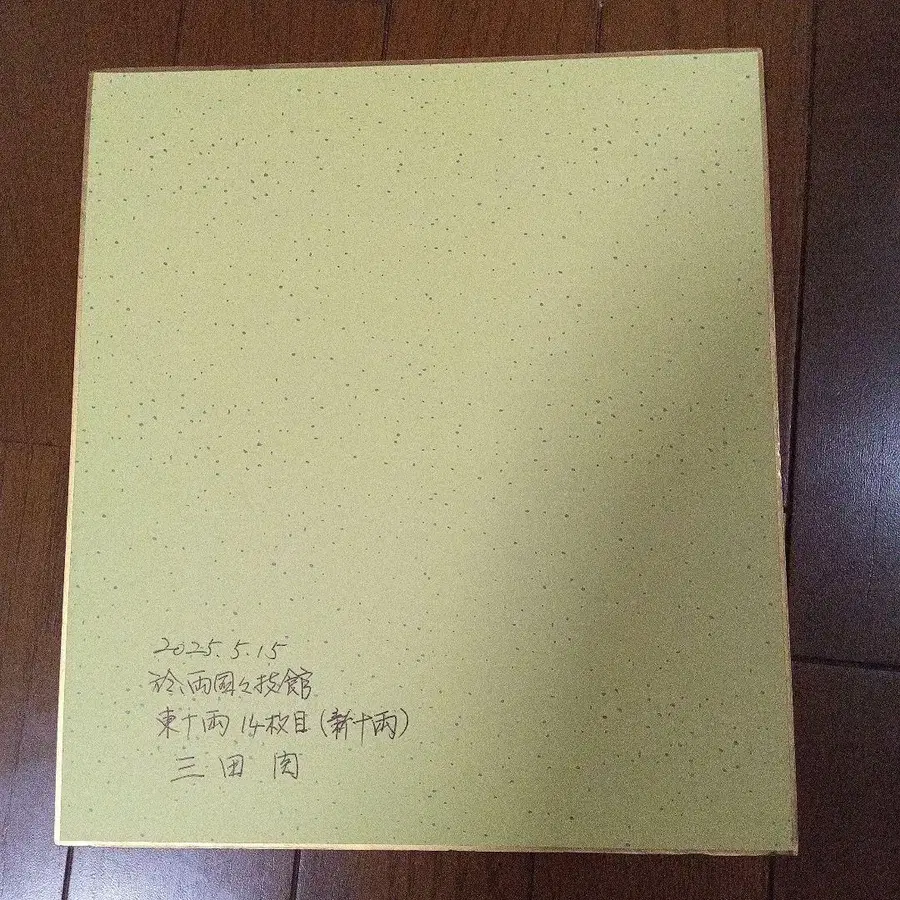 2025.5.15
於、両國々技館
東十両 14枚目(新十両)
三田関